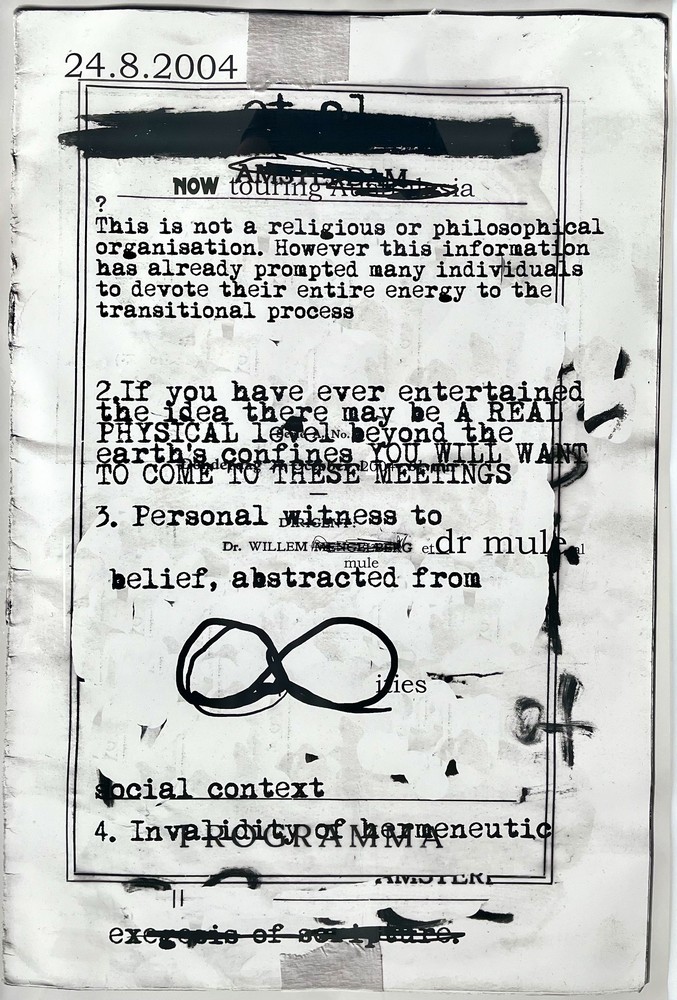 24.8.2004
et al
AMSTERDAM
NOW touring Australasia
?
This is not a religious or philosophical
organisation. However this information
has already prompted many individuals
to devote their entire energy to the
transitional process
2.If you have ever entertained
the idea there may be A REAL
PHYSICAL level beyond the
earth's confines YOU WILL WANT
TO COME TO THESE MEETINGS
3. Personal witness to
DIRIGENT:
Dr. WILLEM MENGELBERG et dr mule al
mule
belief, abstracted from
ities
social context
4. Invalidity of hermeneutic
PROGRAMMA
AMSTER
exegesis of scripture.